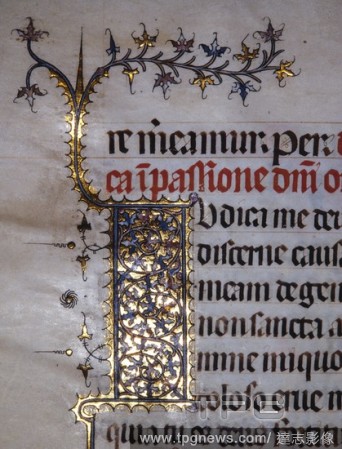 re m̄camur. Per
ca ī passione dn̄i
Udica me
discerne caus
meam de gen
non sancta a
mine iniquo
coloso que m
quia tu es deus
TPG
www.tpgnews.com / 達志影像